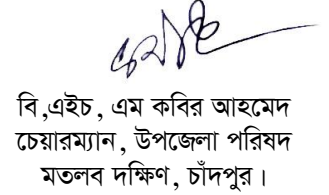 বি,এইচ, এম কবির আহমেদ
চেয়ারম্যান, উপজেলা পরিষদ
মতলব দক্ষিণ, চাঁদপুর।